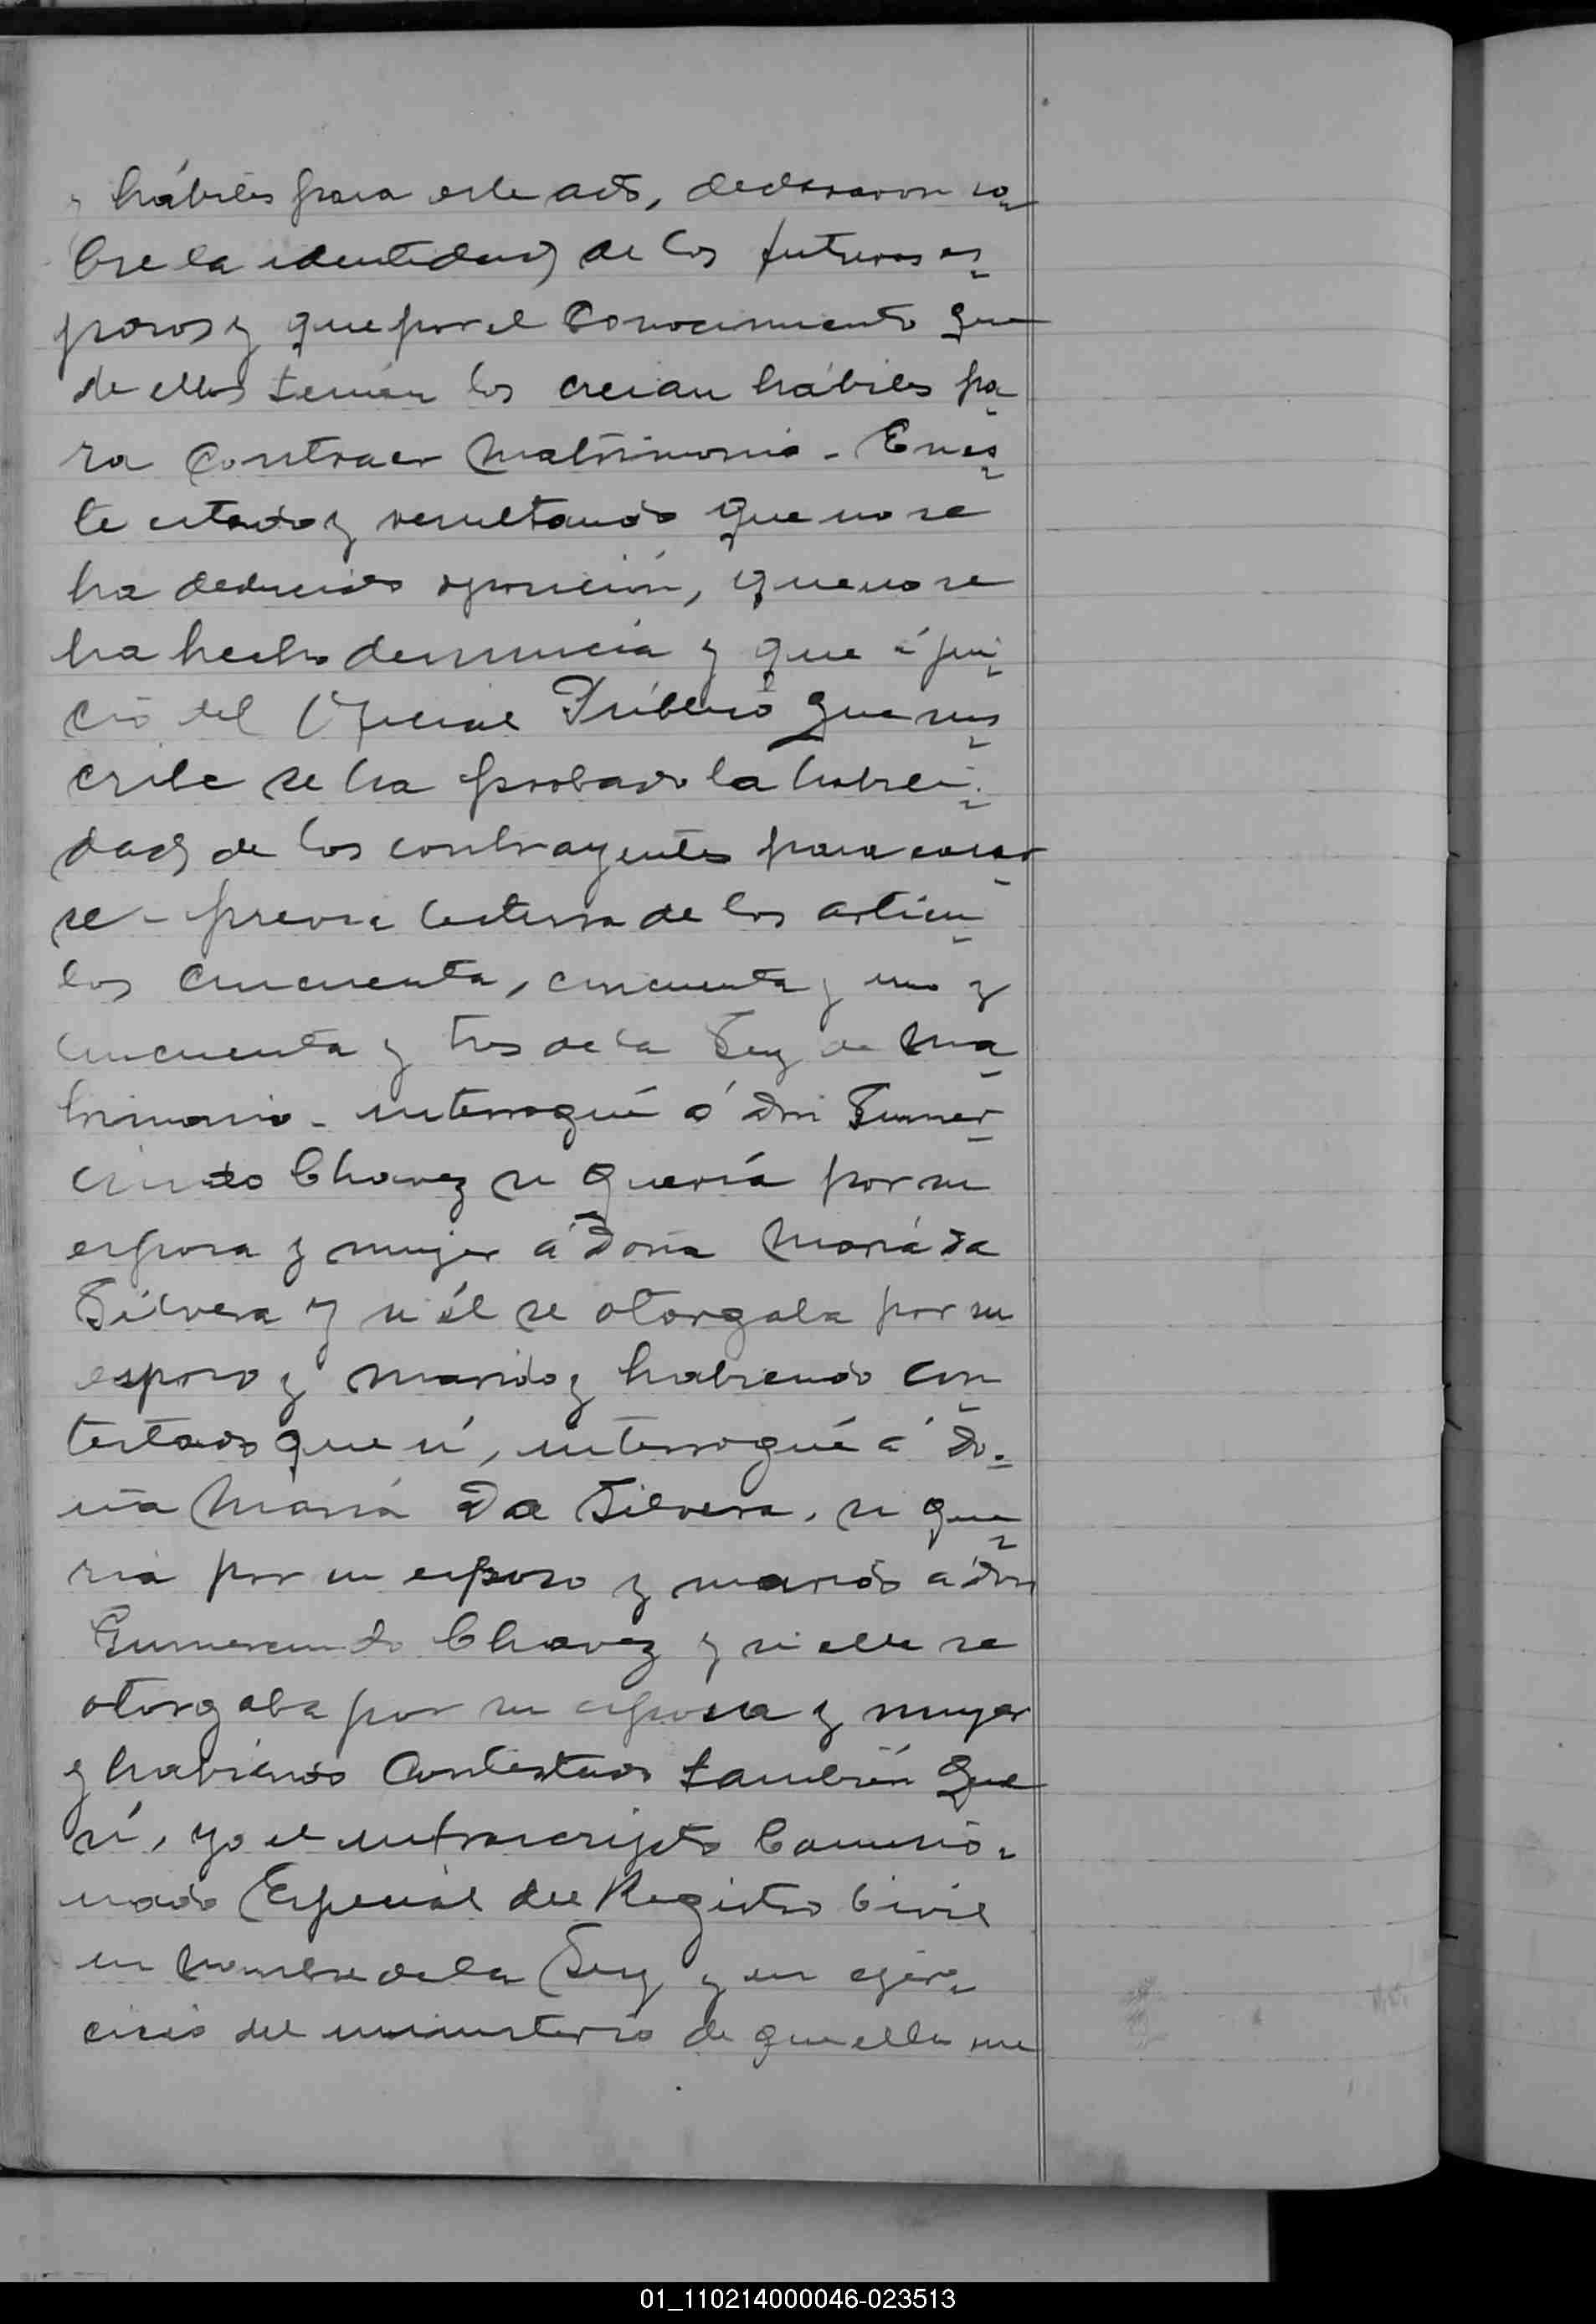 y hábiles para este acto, declararon so-
bre la identidad de los futuros es-
posos y que por el conocimiento que
de ellos tenían los creian hábiles pa-
ra contraer matrimonio - En es-
te estado y resultando que no se
ha deducido oposición, que no se
ha hecho denuncia y que á jui-
cio del Oficial Público que sus-
cribe se ha probado la habili-
dad de los contrayentes para casar-
se - previa lectura de los artícu-
los cincuenta, cincuenta y uno y
cincuenta y tres de la Ley de Ma-
trimonio - interrogué á don Gumer-
cindo Chavez si quería por su
esposa y mujer á doña María da
Silvera y si él se otorgaba por su
esposo y marido y habiendo con-
testado que sí, interrogué á do-
ña María Da Silvera, si que-
ría por su esposo y marido á don
Gumercindo Chavez y si ella se
otorgaba por su esposa y mujer
y habiendo contestado también que
sí, yo el infrascripto Comisio-
nado Especial del Registro Civil
en nombre de la Ley y en ejer-
cicio del ministerio de que ella me
01_110214000046-023513